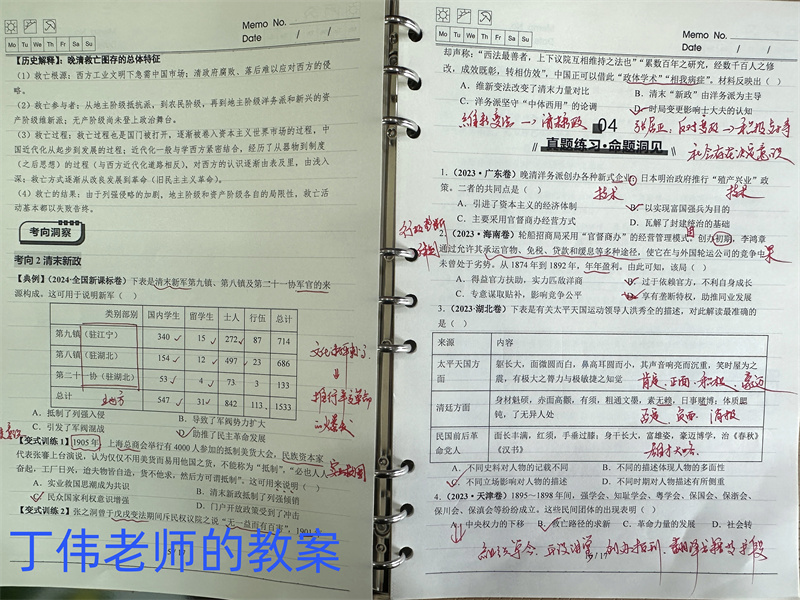 Memo No.
Mo Tu We Th Fr Sa Su
Date / /
【历史解释】：晚清救亡图存的总体特征
（1）救亡根源：西方工业文明下急需中国市场；清政府腐败、落后难以应对西方的侵
略。
（2）救亡参与者：从地主阶级抵抗派，到农民阶级，再到地主阶级洋务派和新兴的资
产阶级维新派；无产阶级尚未登上政治舞台。
（3）救亡过程：救亡过程也是国门被打开，逐渐被卷入资本主义世界市场的过程，中
国近代化从起步到发展的过程；近代化一般与学西方紧密结合，经历了从器物到制度
（之后思想）的过程（与西方近代化道路相反），对西方的认识逐渐由表及里，由浅入
深；救亡方式逐渐从改良发展到革命（旧民主主义革命）。
（4）救亡的结果：由于列强侵略的加剧，地主阶级和资产阶级各自的局限性，救亡活
动基本都以失败告终。
考向洞察
考向 2 清末新政
【典例】（2024·全国新课标卷）下表是清末新军第九镇、第八镇及第二十一协军官的来
源构成。这可用于说明新军（ ）
类别部别 国内学生 留学生 士人 行伍 总计
第九镇（驻江宁） 340 15 272 87 714
第八镇（驻湖北） 154 12 497 23 686
第二十一协（驻湖北） 53 4 73 3 133
总计 547 31 842 113 1533
A．抵制了列强入侵 B．导致了军阀势力扩大
C．引发了军阀混战 D．助推了民主革命发展
【变式训练 1】1905 年，上海总商会举行有 4000 人参加的抵制美货大会，民族资本家
代表张謇上台演说，认为仅仅不用美货而易用他国之货，不能称为“抵制”，“必也人人
奋起，工厂日兴，迨夫物皆自造，货不他求，然后方可谓抵制”。这可用来说明（ ）
A．实业救国思潮成为共识 B．清末新政抵制了列强倾销
C．民众国家利权意识增强 D．门户开放政策受到了冲击
【变式训练 2】张之洞曾于戊戌变法期间斥民权议院之说“无一益而有百害”，1901
丁伟老师的教案
Memo No.
Mo Tu We Th Fr Sa Su
Date / /
却声称：“西法最善者，上下议院互相维持之法也”“累数百年之研究，经数千百人之修
改，成效既彰，转相仿效”，中国正可以借此“政体学术”“相我病症”。材料反映出（ ）
A．维新变法改变了清末力量对比 B．清末“新政”由洋务派为主导
C．洋务派坚守“中体西用”的论调 D．时局变更影响士大夫的认知
04
真题练习·命题洞见
1．（2023·广东卷）晚清洋务派创办各种新式企业，日本明治政府推行“殖产兴业”政
策。二者的共同点是（ ）
技术 技术
A．引进了资本主义的经济体制 B．以实现富国强兵为目的
C．主要采用官督商办经营方式 D．瓦解了封建统治的基础
2．（2023·海南卷）轮船招商局采用“官督商办”的经营管理模式，创办初期，李鸿章
通过允许其承运官物、免税、贷款和缓息等多种途径，使它在与外国轮运公司的竞争中
未曾处于劣势。从 1874 年到 1892 年，年年盈利。由此可知，该局（ ）
A．得益官方扶助，实力匹敌洋商 B．过于依赖官方，不利自身成长
C．专意谋取贴补，影响竞争公平 D．享有垄断特权，助推同业发展
3．（2023·湖北卷）下表是有关太平天国运动领导人洪秀全的描述，对此解读最准确的
是（ ）
来源 内容
太平天国方面 躯长大，面微圆而白，鼻高耳圆而小，其声音响亮而沉重，笑时屋为之
震，有极大之膂力与极敏捷之知觉
清廷方面 身材魁硕，赤面高颧，有须，粗通文墨，素无赖，日事赌博；体质臃
钝，了无异人处
民国前后革命党人 面长丰满，红须，手垂过膝；身于长大，富雄姿，豪迈博学，治《春秋》
《汉书》
A．不同史料对人物的记载不同 B．不同的描述体现人物的多面性
C．不同立场影响对人物的描述 D．不同时期对人物描述有所侧重
4．（2023·天津卷）1895～1898 年间，强学会、知耻学会、粤学会、保国会、保浙会、
保川会、保滇会等纷纷成立。这些民间团体的出现表明（ ）
A．中央权力的下移 B．救亡路径的求新 C．革命力量的发展 D．社会转